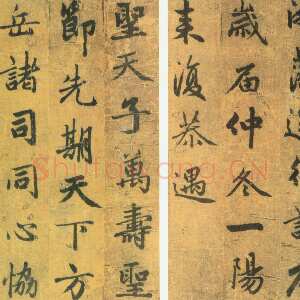 歲屆仲冬一陽
来復恭遇
聖天子萬壽聖
節先期天下方
岳諸司同心恊